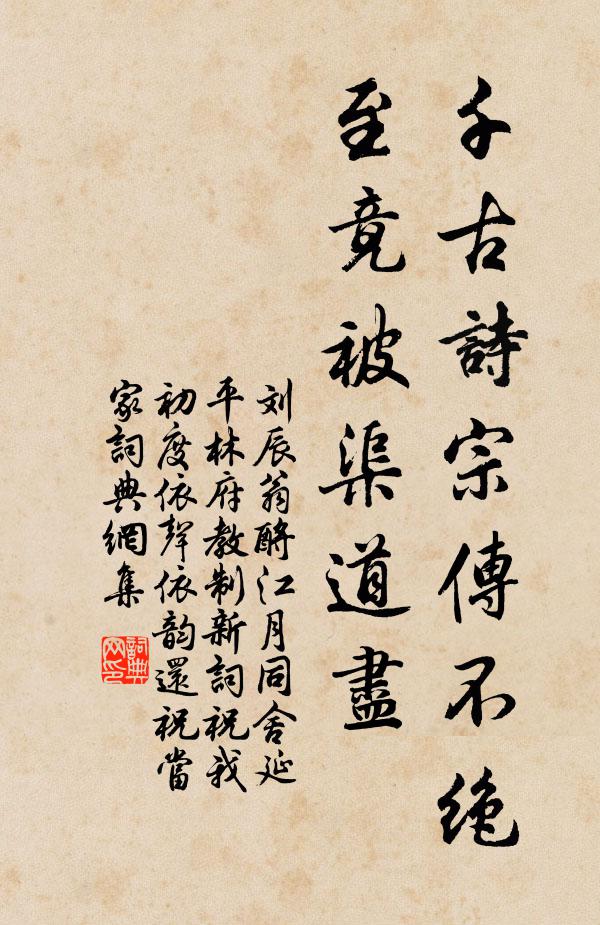 千古詩宗傳不絶
至竟被渠道盡
刘辰翁酹江月同舍延
平林府教制新詞祝我
初度依聲依韵還祝當
家詞典網集
詞典网印